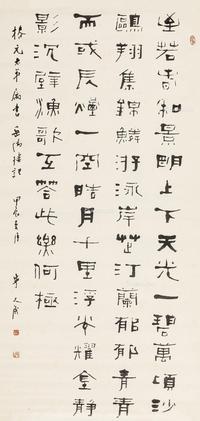 至若春和景明上下天光一碧萬頃沙
鷗翔集錦鱗游泳岸芷汀蘭郁郁青青
而或長煙一空皓月千里浮光耀金靜
影沉璧漁歌互答此樂何極
元老弟屬書岳陽樓記